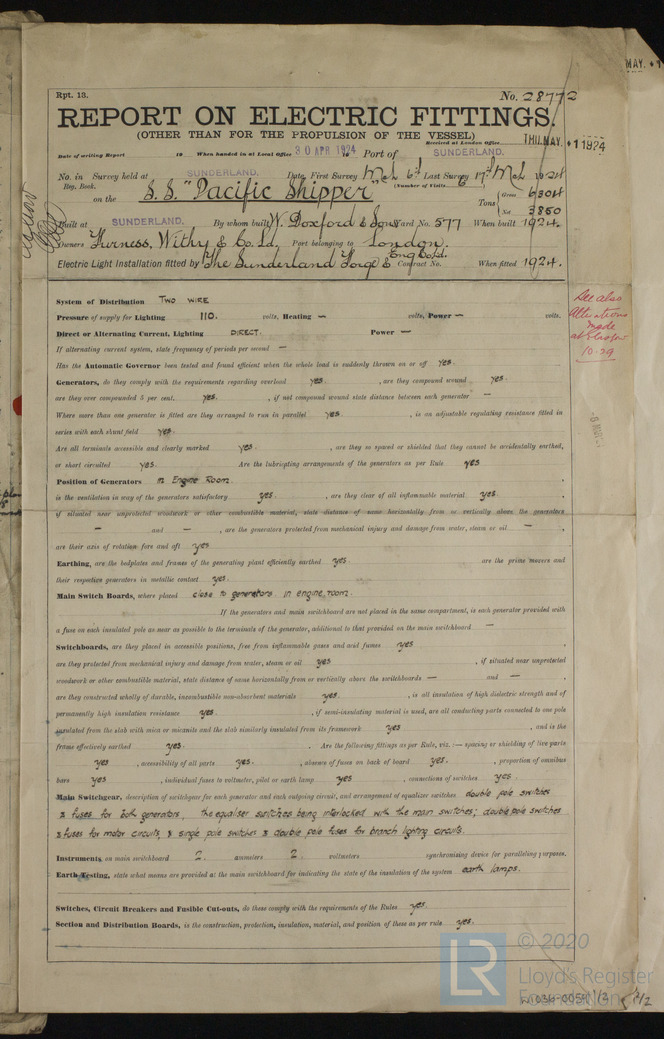 MAY. 1
Rpt. 13.
No. 28772
REPORT ON ELECTRIC FITTINGS.
(OTHER THAN FOR THE PROPULSION OF THE VESSEL)
Received at London Office THU. MAY. 1 1924
Date of writing Report 19 When handed in at Local Office 30 APR 1924 19 Port of SUNDERLAND.
No. in Survey held at SUNDERLAND. Date, First Survey Mch 6th Last Survey 17th Mch 1924
Reg. Book. (Number of Visits 6)
on the S.S. "Pacific Shipper" Tons { Gross 6304
Net 3850
Built at SUNDERLAND. By whom built W. Doxford & Sons Yard No. 577 When built 1924.
Owners Furness, Withy & Co. Ld. Port belonging to London.
Electric Light Installation fitted by The Sunderland Forge & Eng. Co. Ld. Contract No. When fitted 1924.
System of Distribution TWO WIRE
Pressure of supply for Lighting 110. volts, Heating — volts, Power — volts.
Direct or Alternating Current, Lighting DIRECT. Power —
If alternating current system, state frequency of periods per second —
Has the Automatic Governor been tested and found efficient when the whole load is suddenly thrown on or off yes.
Generators, do they comply with the requirements regarding overload yes. , are they compound wound yes.
are they over compounded 5 per cent. yes. , if not compound wound state distance between each generator —
Where more than one generator is fitted are they arranged to run in parallel yes. , is an adjustable regulating resistance fitted in
series with each shunt field yes.
Are all terminals accessible and clearly marked yes. , are they so spaced or shielded that they cannot be accidentally earthed,
or short circuited yes. Are the lubricating arrangements of the generators as per Rule yes
Position of Generators in Engine Room.
is the ventilation in way of the generators satisfactory yes. , are they clear of all inflammable material yes.
if situated near unprotected woodwork or other combustible material, state distance of same horizontally from or vertically above the generators
— and — , are the generators protected from mechanical injury and damage from water, steam or oil — .
are their axis of rotation fore and aft yes
Earthing, are the bedplates and frames of the generating plant efficiently earthed yes. are the prime movers and
their respective generators in metallic contact yes.
Main Switch Boards, where placed close to generators in engine room.
If the generators and main switchboard are not placed in the same compartment, is each generator provided with
a fuse on each insulated pole as near as possible to the terminals of the generator, additional to that provided on the main switchboard —
Switchboards, are they placed in accessible positions, free from inflammable gases and acid fumes yes
are they protected from mechanical injury and damage from water, steam or oil yes , if situated near unprotected
woodwork or other combustible material, state distance of same horizontally from or vertically above the switchboards — and — .
are they constructed wholly of durable, incombustible non-absorbent materials yes. , is all insulation of high dielectric strength and of
permanently high insulation resistance yes. , if semi-insulating material is used, are all conducting parts connected to one pole
insulated from the slab with mica or micanite and the slab similarly insulated from its framework yes , and is the
frame effectively earthed yes. . Are the following fittings as per Rule, viz. :— spacing or shielding of live parts
yes , accessibility of all parts yes. , absence of fuses on back of board yes. , proportion of omnibus
bars yes , individual fuses to voltmeter, pilot or earth lamp yes , connections of switches yes.
Main Switchgear, description of switchgear for each generator and each outgoing circuit, and arrangement of equalizer switches double pole switches
& fuses for both generators, the equaliser switches being interlocked with the main switches; double pole switches
& fuses for motor circuits, & single pole switches & double pole fuses for branch lighting circuits.
Instruments, on main switchboard 2. ammeters 2. voltmeters synchronising device for paralleling purposes.
Earth Testing, state what means are provided at the main switchboard for indicating the state of the insulation of the system earth lamps.
Switches, Circuit Breakers and Fusible Cut-outs, do these comply with the requirements of the Rules yes.
Section and Distribution Boards, is the construction, protection, insulation, material, and position of these as per rule yes.
See also
Alterations
made
at Glasgow
10.29
LR
© 2020
Lloyd's Register
Foundation
W1036-0059 1/2